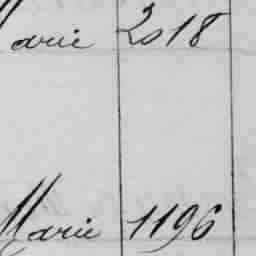 Marie 2018
Marie 1196